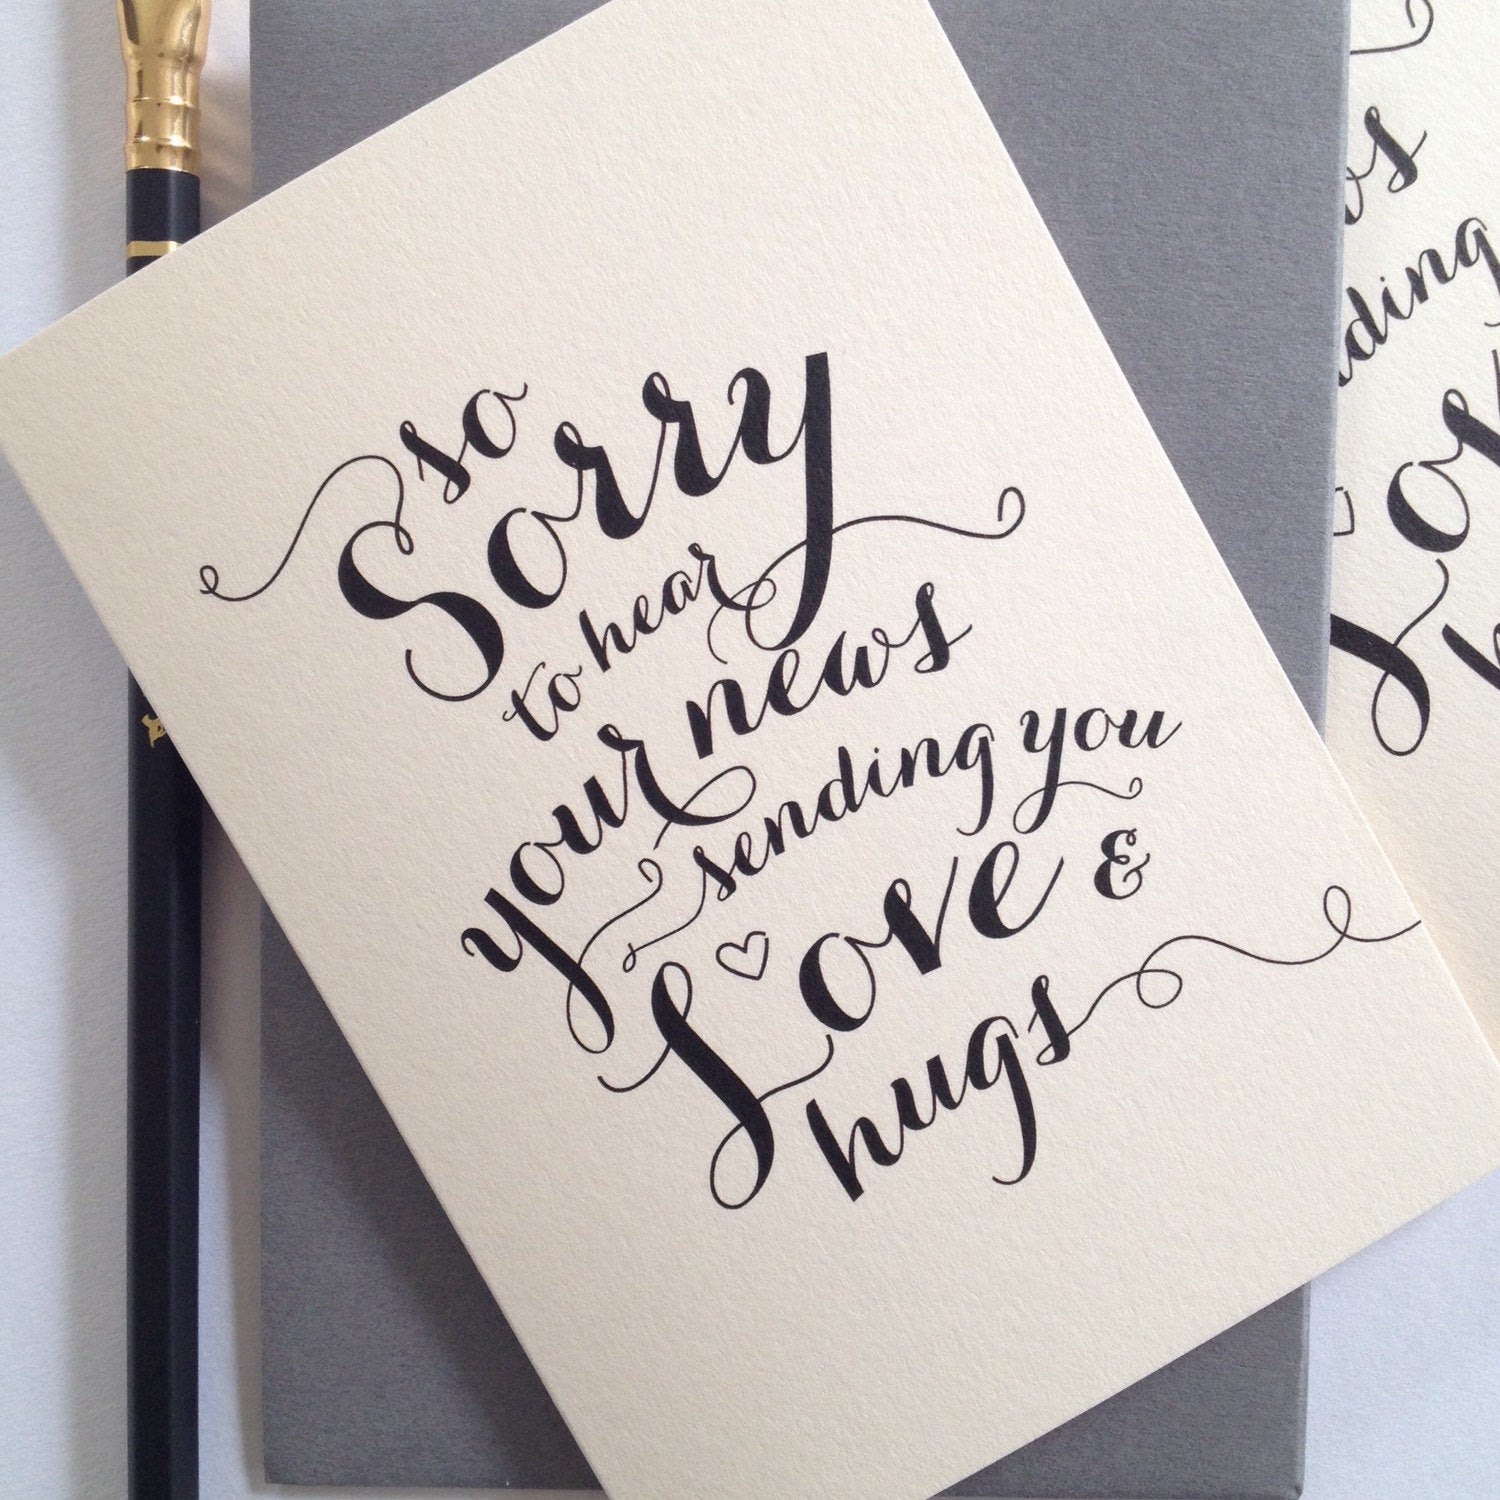 so
Sorry
to hear
your news
sending you
Love &
hugs
ws
ding
Lo
h